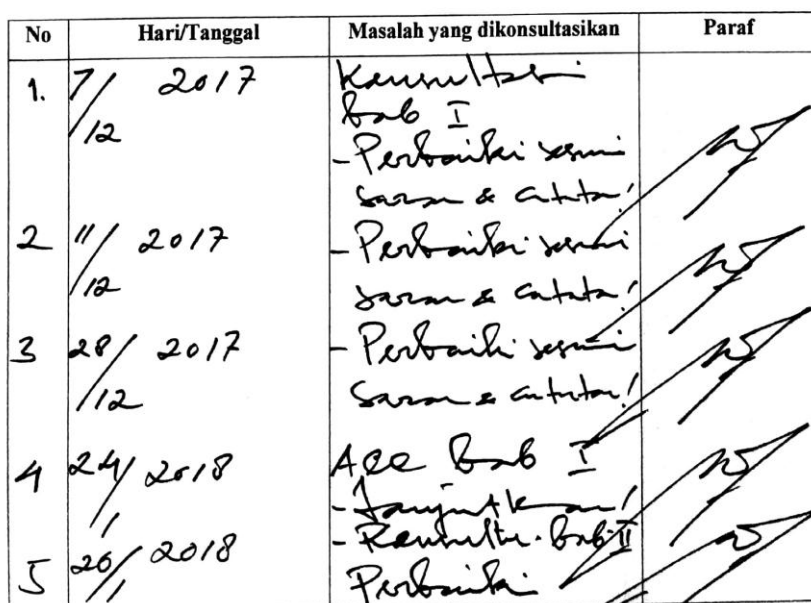 No Hari/Tanggal Masalah yang dikonsultasikan Paraf
1. 7/12 2017 Konsultasi
Bab I
- Perbaiki sesuai
saran & catatan!
2 11/12 2017 - Perbaiki sesuai
saran & catatan!
3 28/12 2017 - Perbaiki sesuai
saran & catatan!
4 24/1 2018 Acc Bab I
- Lanjutkan!
- Konsultasi Bab II
5 26/1 2018 Perbaiki